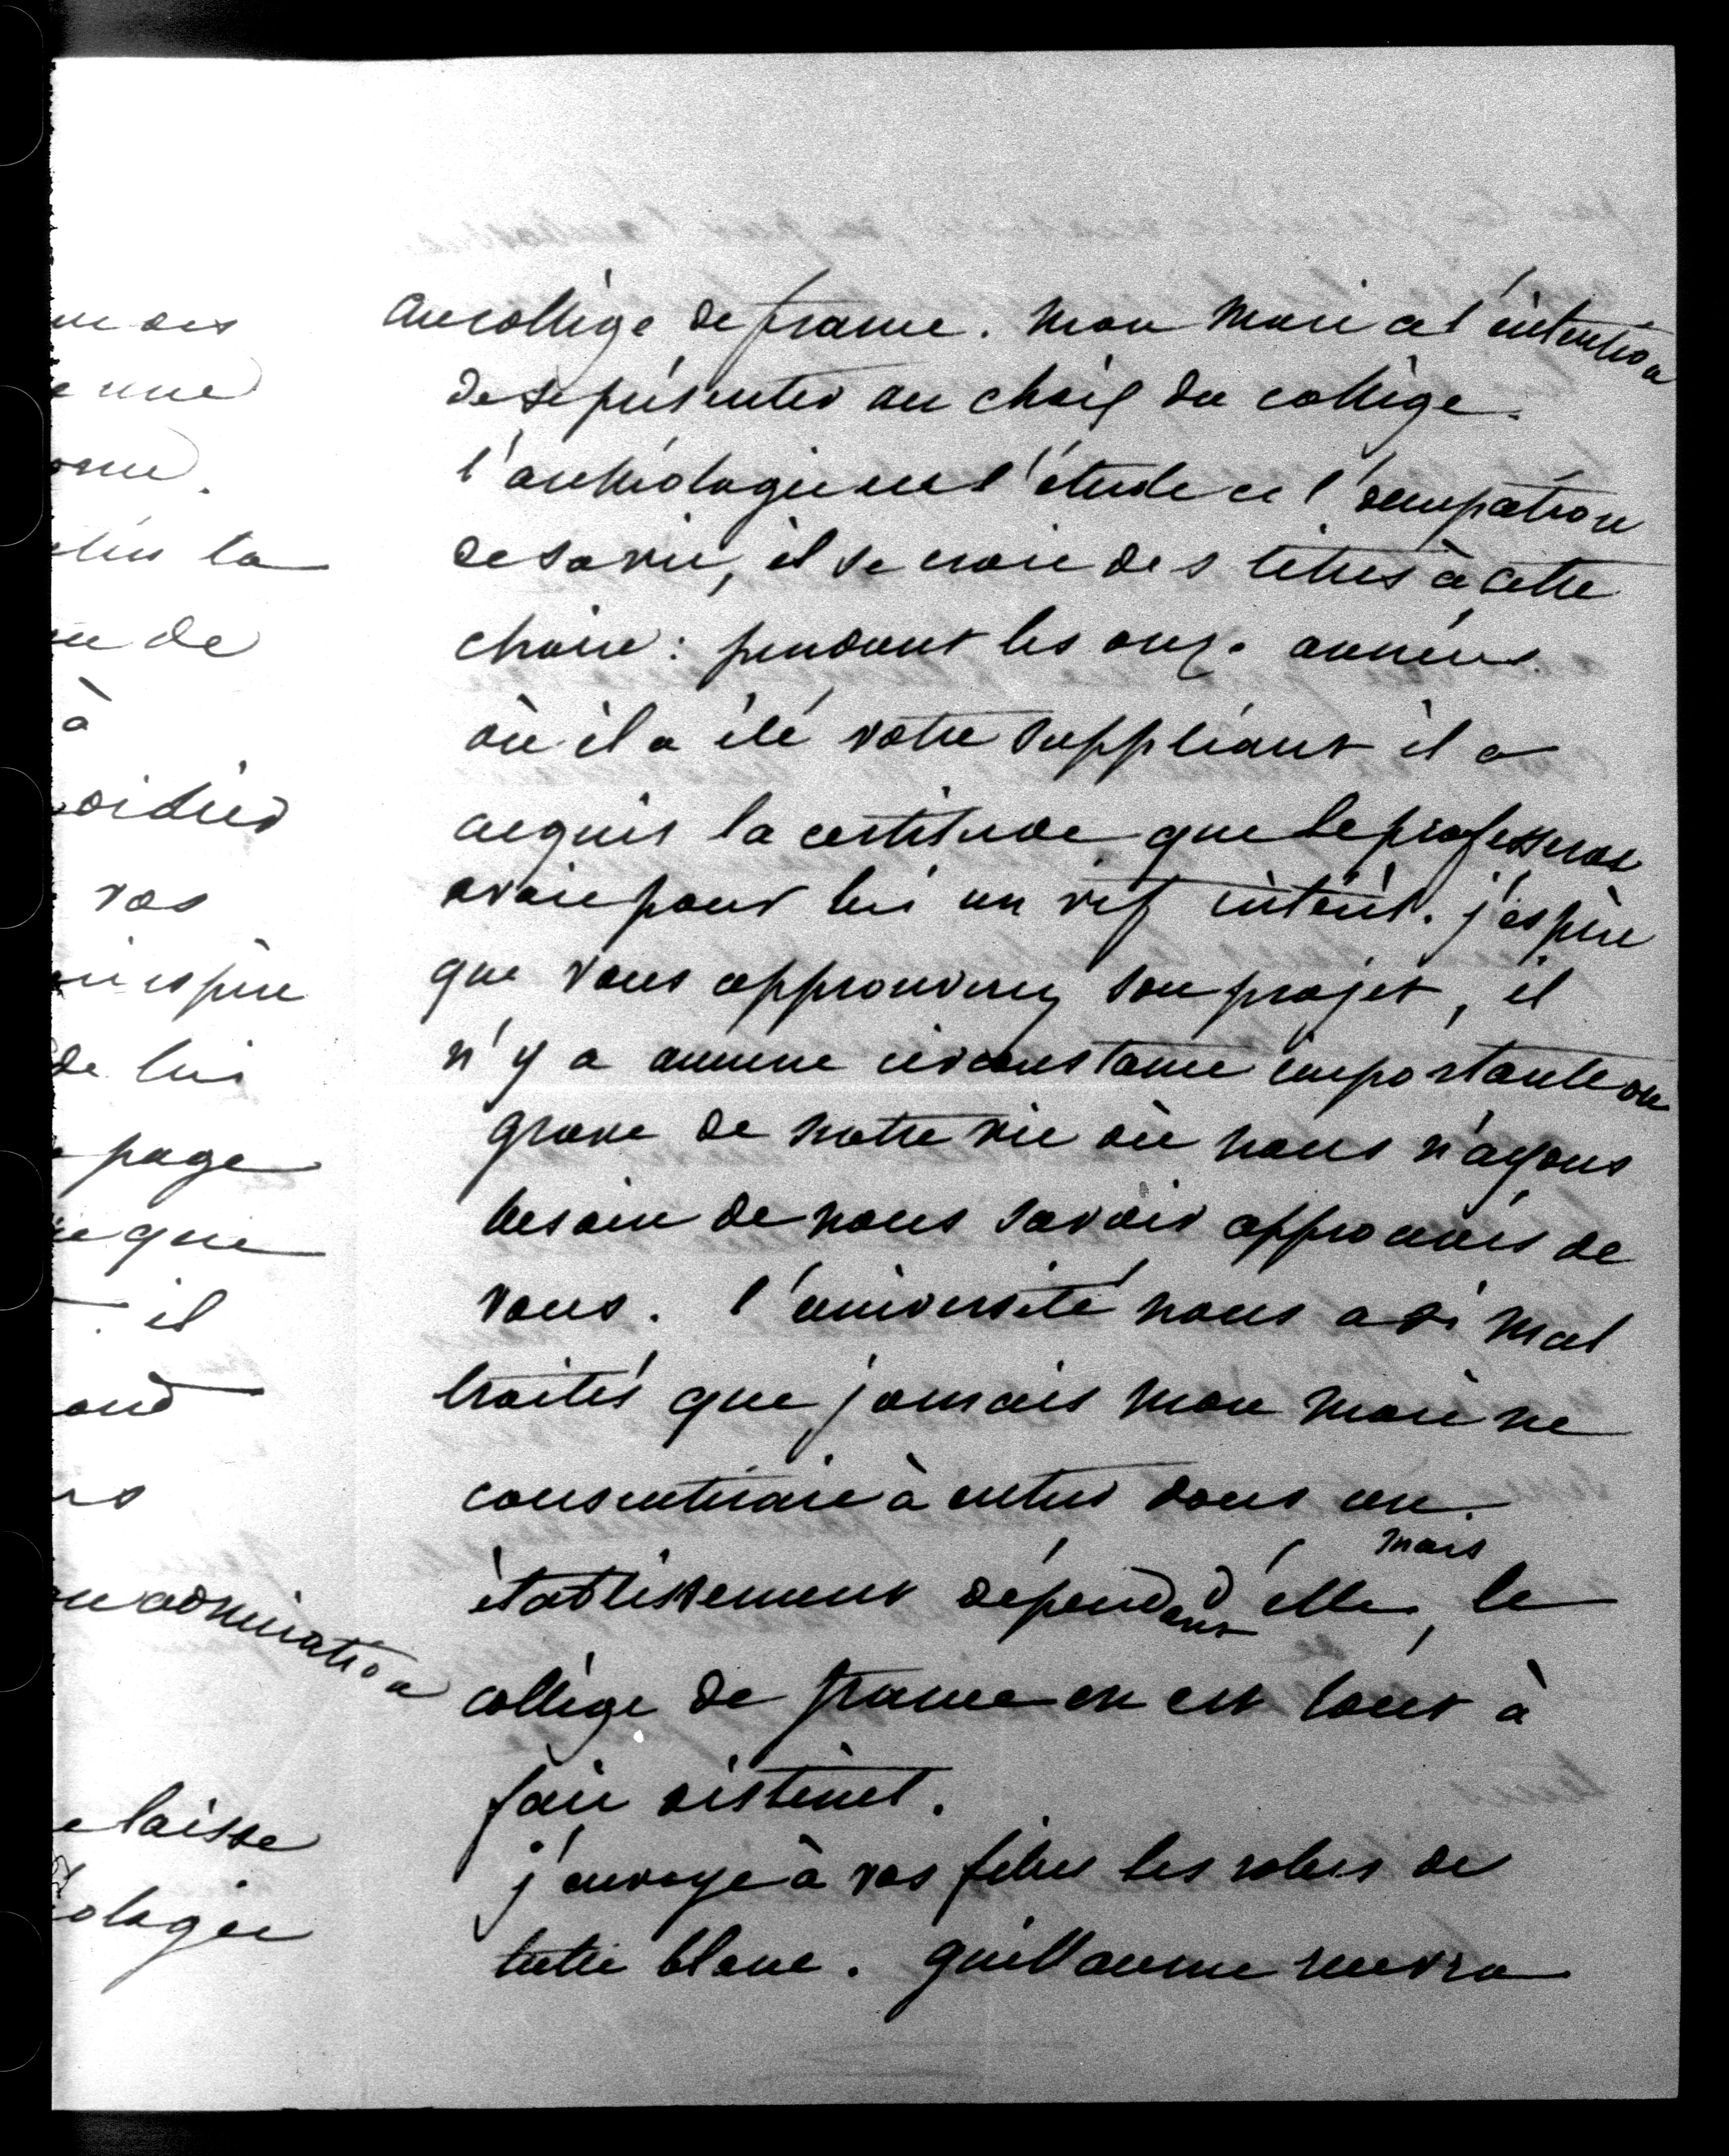 m des
e une
nne.
lus la
n de
à
oidier
vos
n espère
de lui
page
e que
il
and
rs
n admiration
e laisse
ologie
au collège de france. mon mari a l'intention
de se présenter au choix du collège.
l'archéologie est l'étude et l'occupation
de sa vie, il se croit des titres à cette
chaire : pendant les onze années
où il a été votre suppléant il a
acquis la certitude que le professorat
avait pour lui un vif intérêt. j'espère
que vous approuverez son projet, il
n'y a aucune circonstance importante ou
grave de notre vie où nous n'ayons
besoin de nous savoir approuvés de
vous. l'université nous a si mal
traités que jamais mon mari ne
consentirait à entrer dans un
établissement dépendant d'elle, mais le
collège de france en est tout à
fait distinct.
j'envoye à vos filles les robes de
tulle blanc. guillaume suivra